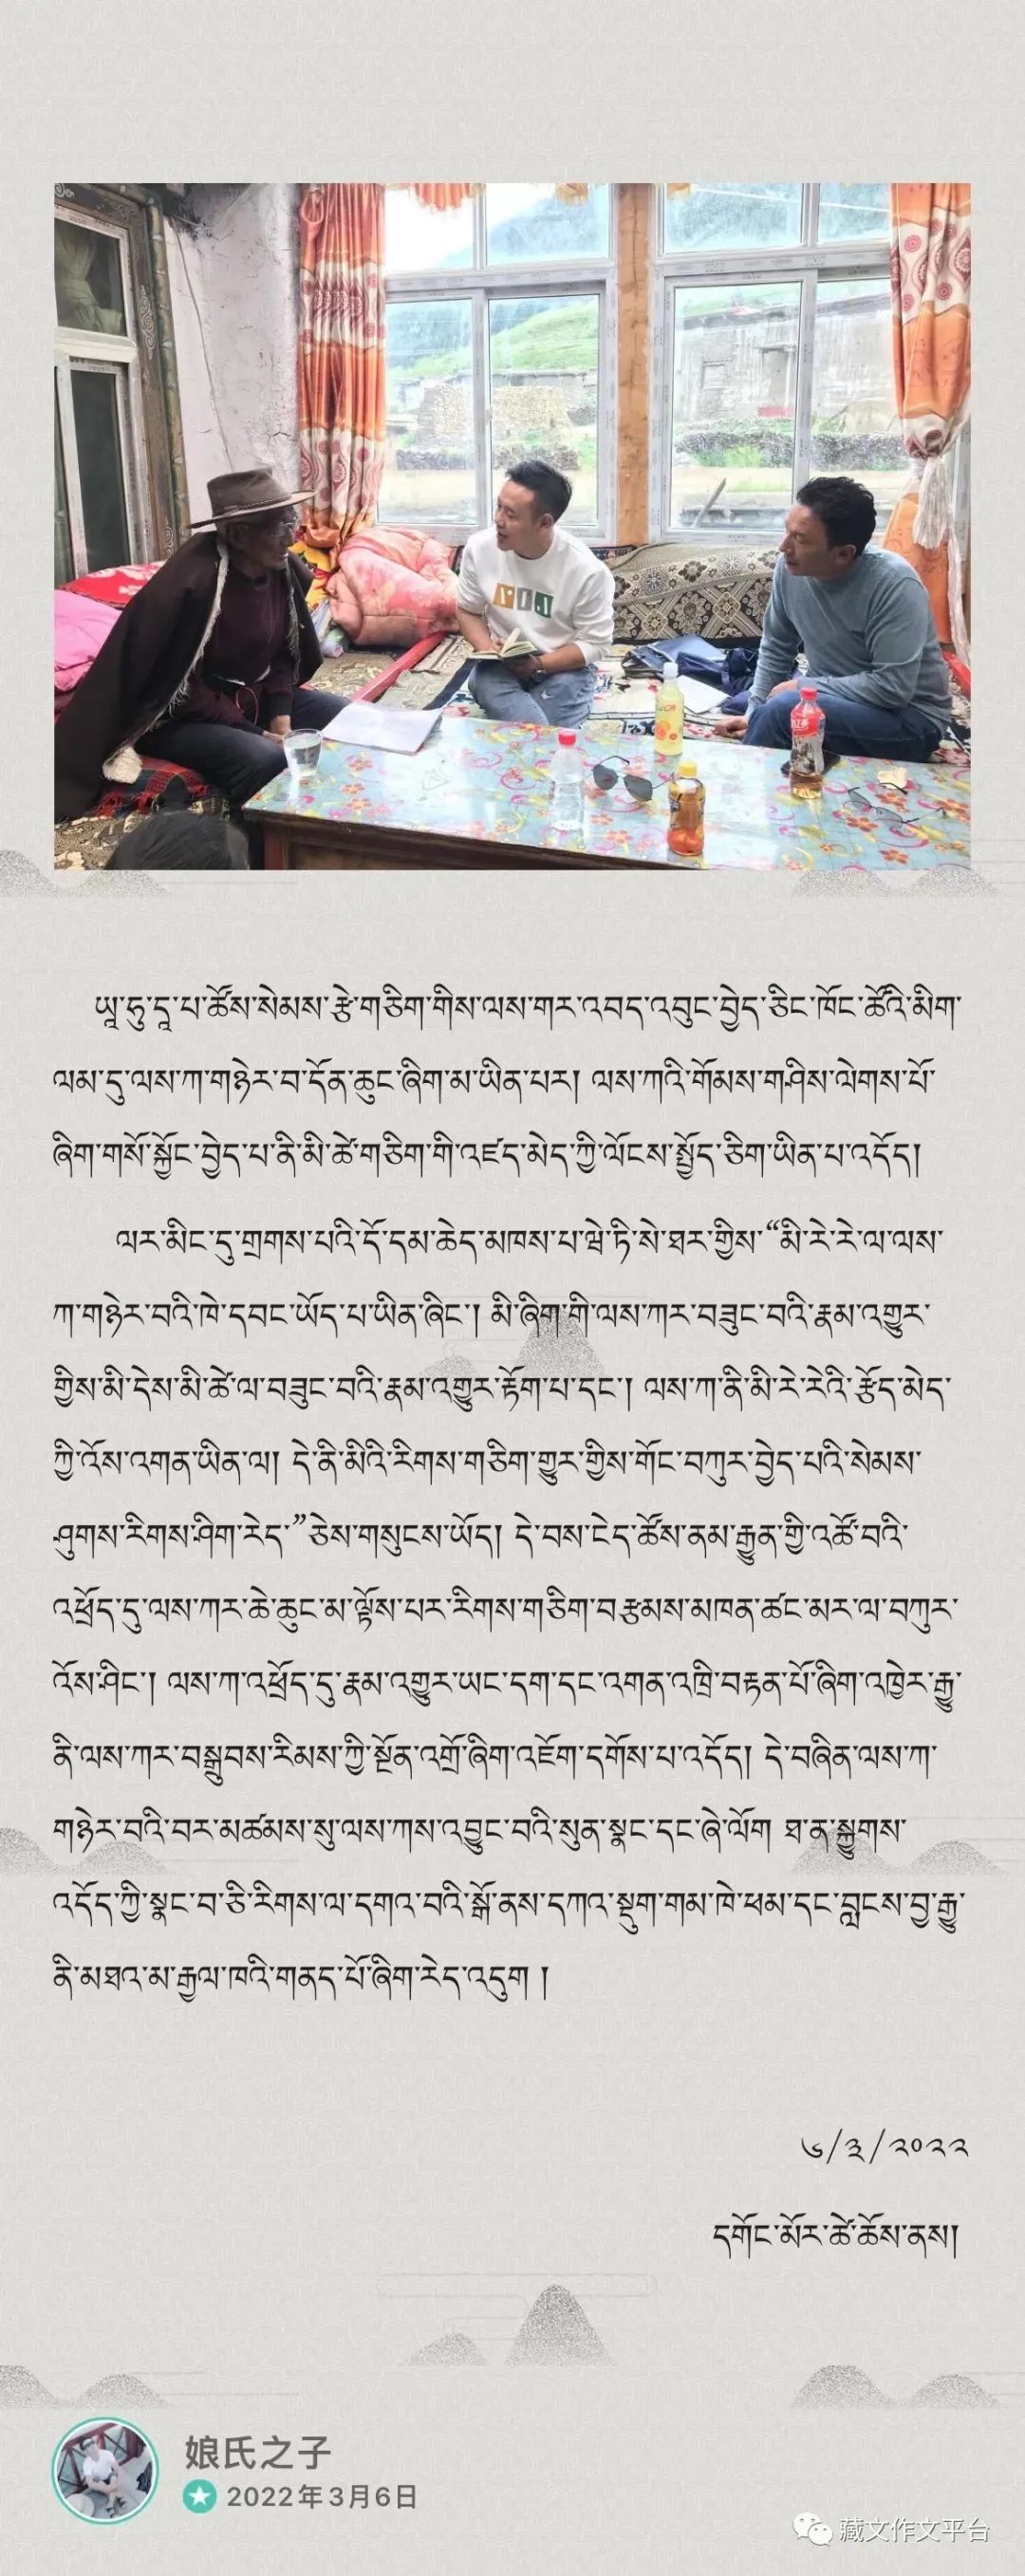 ཡཱ་ཧུ་དཱ་པ་ཚོས་སེམས་རྩེ་གཅིག་གིས་ལས་གར་འབད་འབུང་བྱེད་ཅིང་ཁོང་ཚོའི་མིག་
ལམ་དུ་ལས་ཀ་གཉེར་བ་དོན་ཆུང་ཞིག་མ་ཡིན་པར། ལས་ཀའི་གོམས་གཤིས་ལེགས་པོ་
ཞིག་གསོ་སྐྱོང་བྱེད་པ་ནི་མི་ཚེ་གཅིག་གི་འཛད་མེད་ཀྱི་ལོངས་སྤྱོད་ཅིག་ཡིན་པ་འདོད།
ལར་མིང་དུ་གྲགས་པའི་དོ་དམ་ཆེད་མཁས་པ་ཝེ་ཏི་སེ་ཐར་གྱིས་“མི་རེ་རེ་ལ་ལས་
ཀ་གཉེར་བའི་ཁེ་དབང་ཡོད་པ་ཡིན་ཞིང་། མི་ཞིག་གི་ལས་ཀར་བཟུང་བའི་རྣམ་འགྱུར་
གྱིས་མི་དེས་མི་ཚེ་ལ་བཟུང་བའི་རྣམ་འགྱུར་རྟོག་པ་དང་། ལས་ཀ་ནི་མི་རེ་རེའི་རྩོད་མེད་
ཀྱི་འོས་འགན་ཡིན་ལ། དེ་ནི་མིའི་རིགས་གཅིག་གྱུར་གྱིས་གོང་བཀུར་བྱེད་པའི་སེམས་
ཤུགས་རིགས་ཤིག་རེད་”ཅེས་གསུངས་ཡོད། དེ་བས་ངེད་ཚོས་ནམ་རྒྱུན་གྱི་འཚོ་བའི་
འཕྲོད་དུ་ལས་ཀར་ཆེ་ཆུང་མ་ལྟོས་པར་རིགས་གཅིག་བརྩམས་མཁན་ཚང་མར་ལ་བཀུར་
འོས་ཤིང་། ལས་ཀ་འཕྲོད་དུ་རྣམ་འགྱུར་ཡང་དག་དང་འགན་འཁྲི་བརྟན་པོ་ཞིག་འཁྱེར་རྒྱུ་
ནི་ལས་ཀར་བསྒྲུབས་རིམས་ཀྱི་སྔོན་འགྲོ་ཞིག་འཇོག་དགོས་པ་འདོད། དེ་བཞིན་ལས་ཀ་
གཉེར་བའི་བར་མཚམས་སུ་ལས་ཀས་འབྱུང་བའི་སུན་སྣང་དང་ཞེ་ལོག ཐ་ན་སྐྱུགས་
འདོད་ཀྱི་སྣང་བ་ཅི་རིགས་ལ་དགའ་བའི་སྒོ་ནས་དཀའ་སྡུག་གམ་ཁེ་ཕམ་དང་བླངས་བྱ་རྒྱུ་
ནི་མཐའ་མ་རྒྱལ་ཁའི་གནད་པོ་ཞིག་རེད་འདུག །
༦/༣/༢༠༢༢
དགོང་མོར་ཚེ་ཆོས་ནས།
娘氏之子
2022年3月6日
藏文作文平台